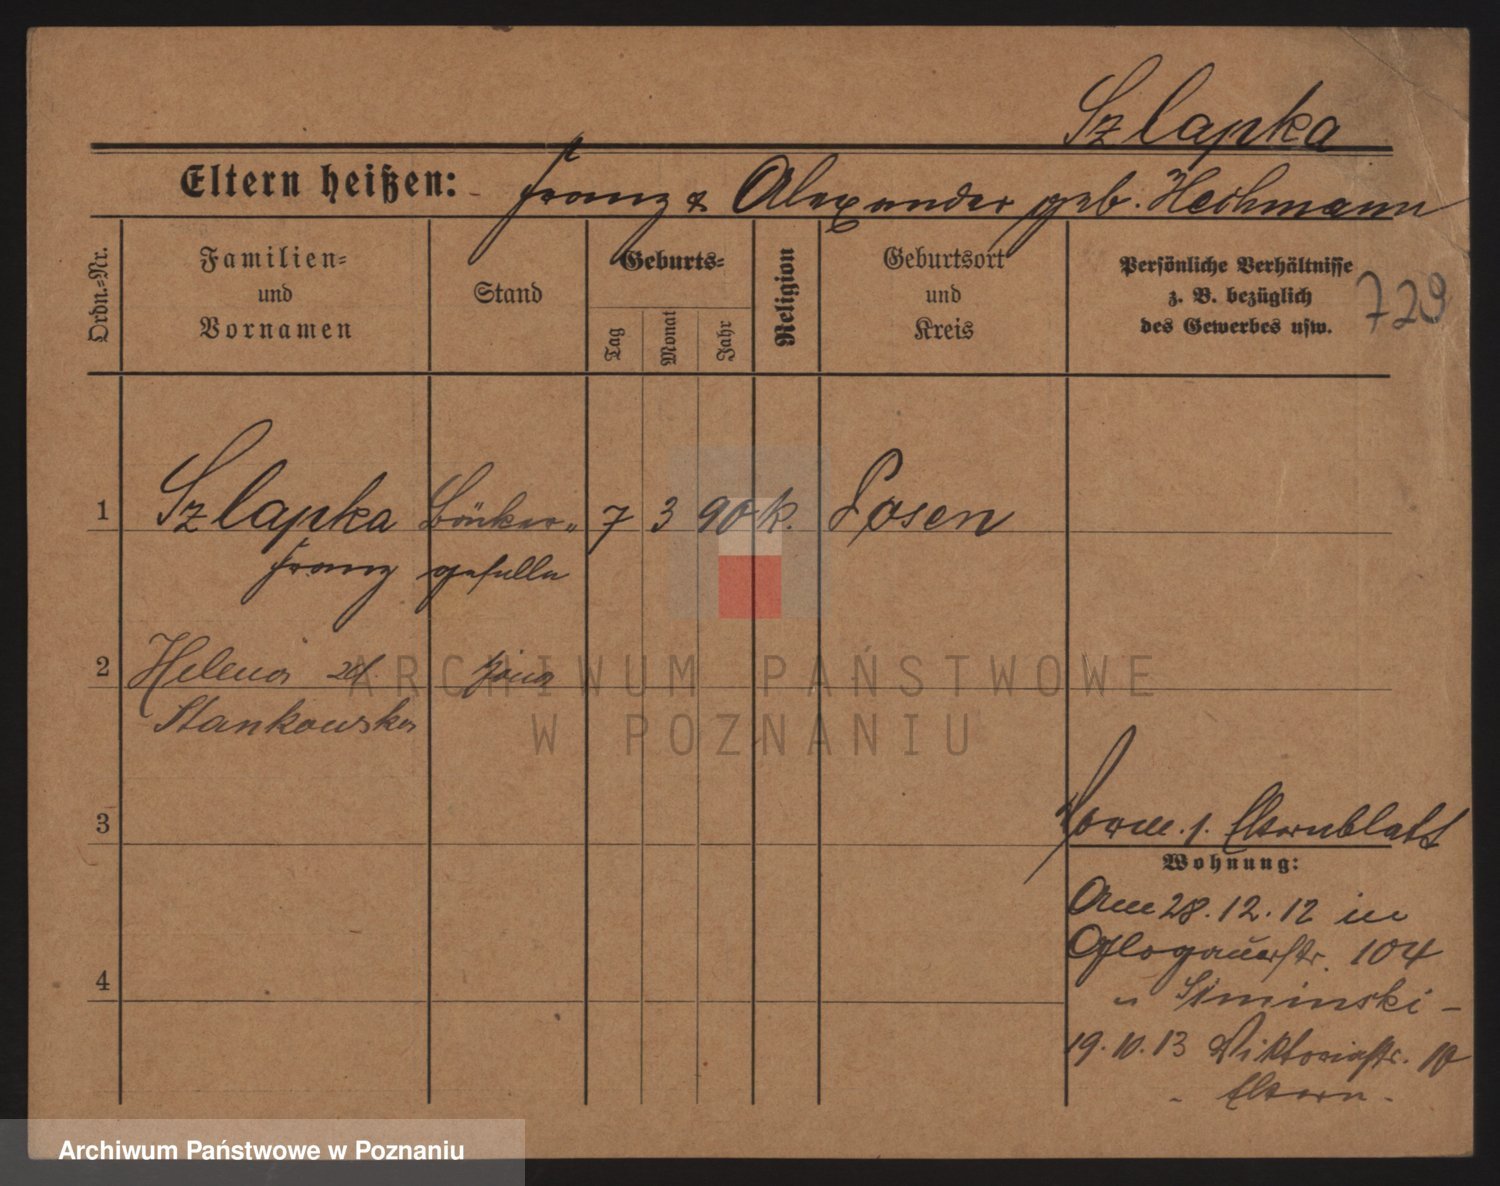 Szlapka
Eltern heißen: Franz & Alexander geb. Hechmann
Ordn.-Nr.
Familien-
und
Vornamen
Stand
Geburts-
Tag
Monat
Jahr
Religion
Geburtsort
und
Kreis
Persönliche Verhältnisse
z. B. bezüglich
des Gewerbes usw.
729
1 Szlapka Bäcker- 7 3 90 k. Posen
Franz geselle
2 Helena
Stankowska
3
Vorm. s. Elternblatt
Wohnung:
Am 28.12.12 in
Glogauerstr. 104
4
" Siminski -
19.10.13 Viktoriastr. 10
- Eltern -
ARCHIWUM PAŃSTWOWE
W POZNANIU
Archiwum Państwowe w Poznaniu